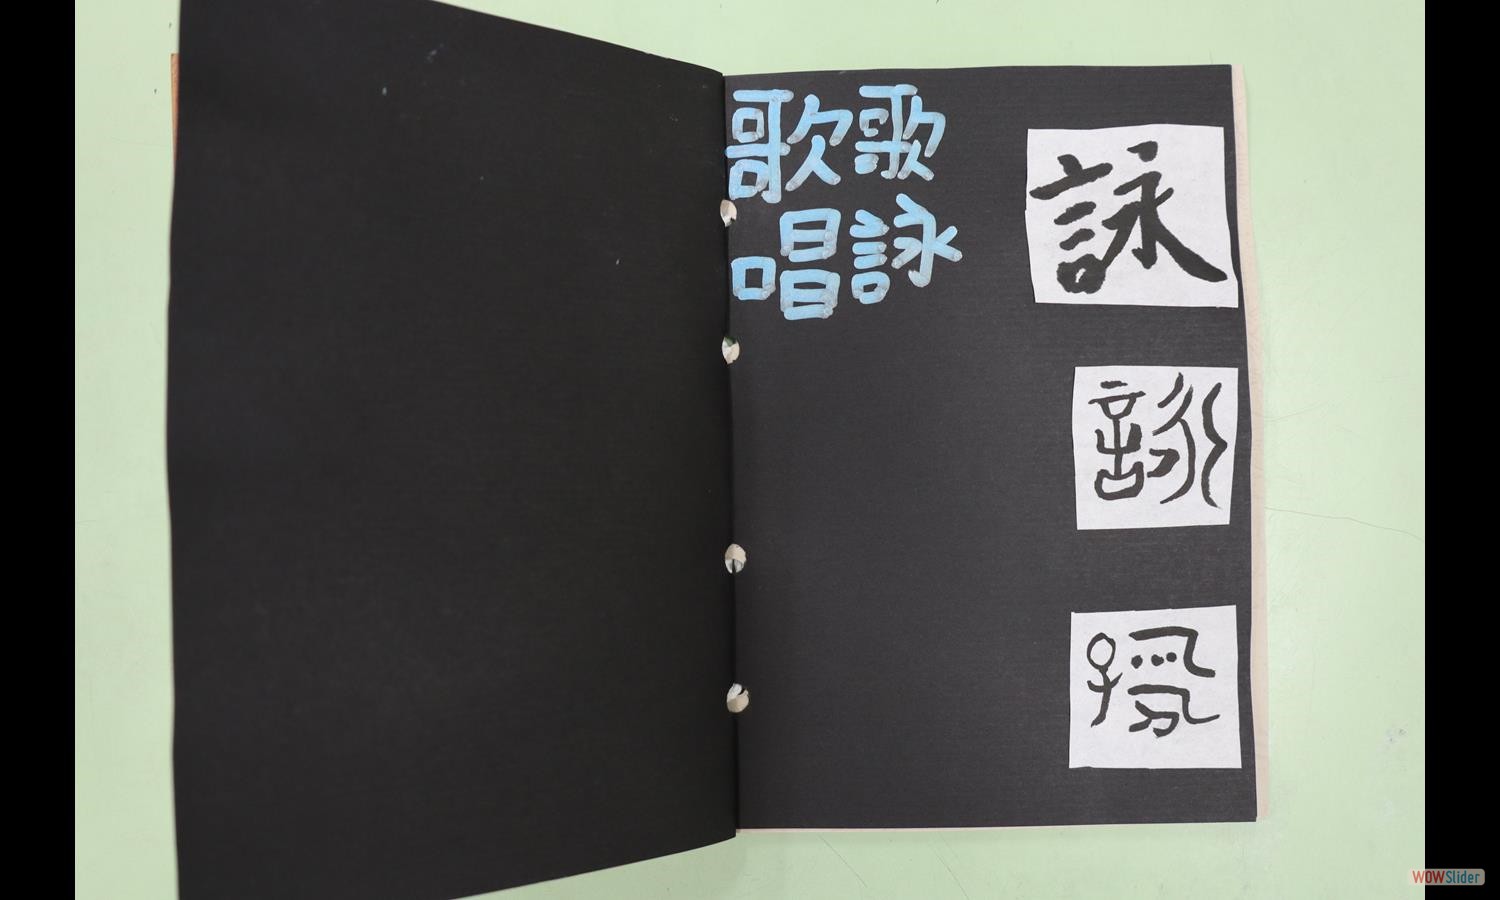 詠
詠
歌詠
歌唱
WOWSlider